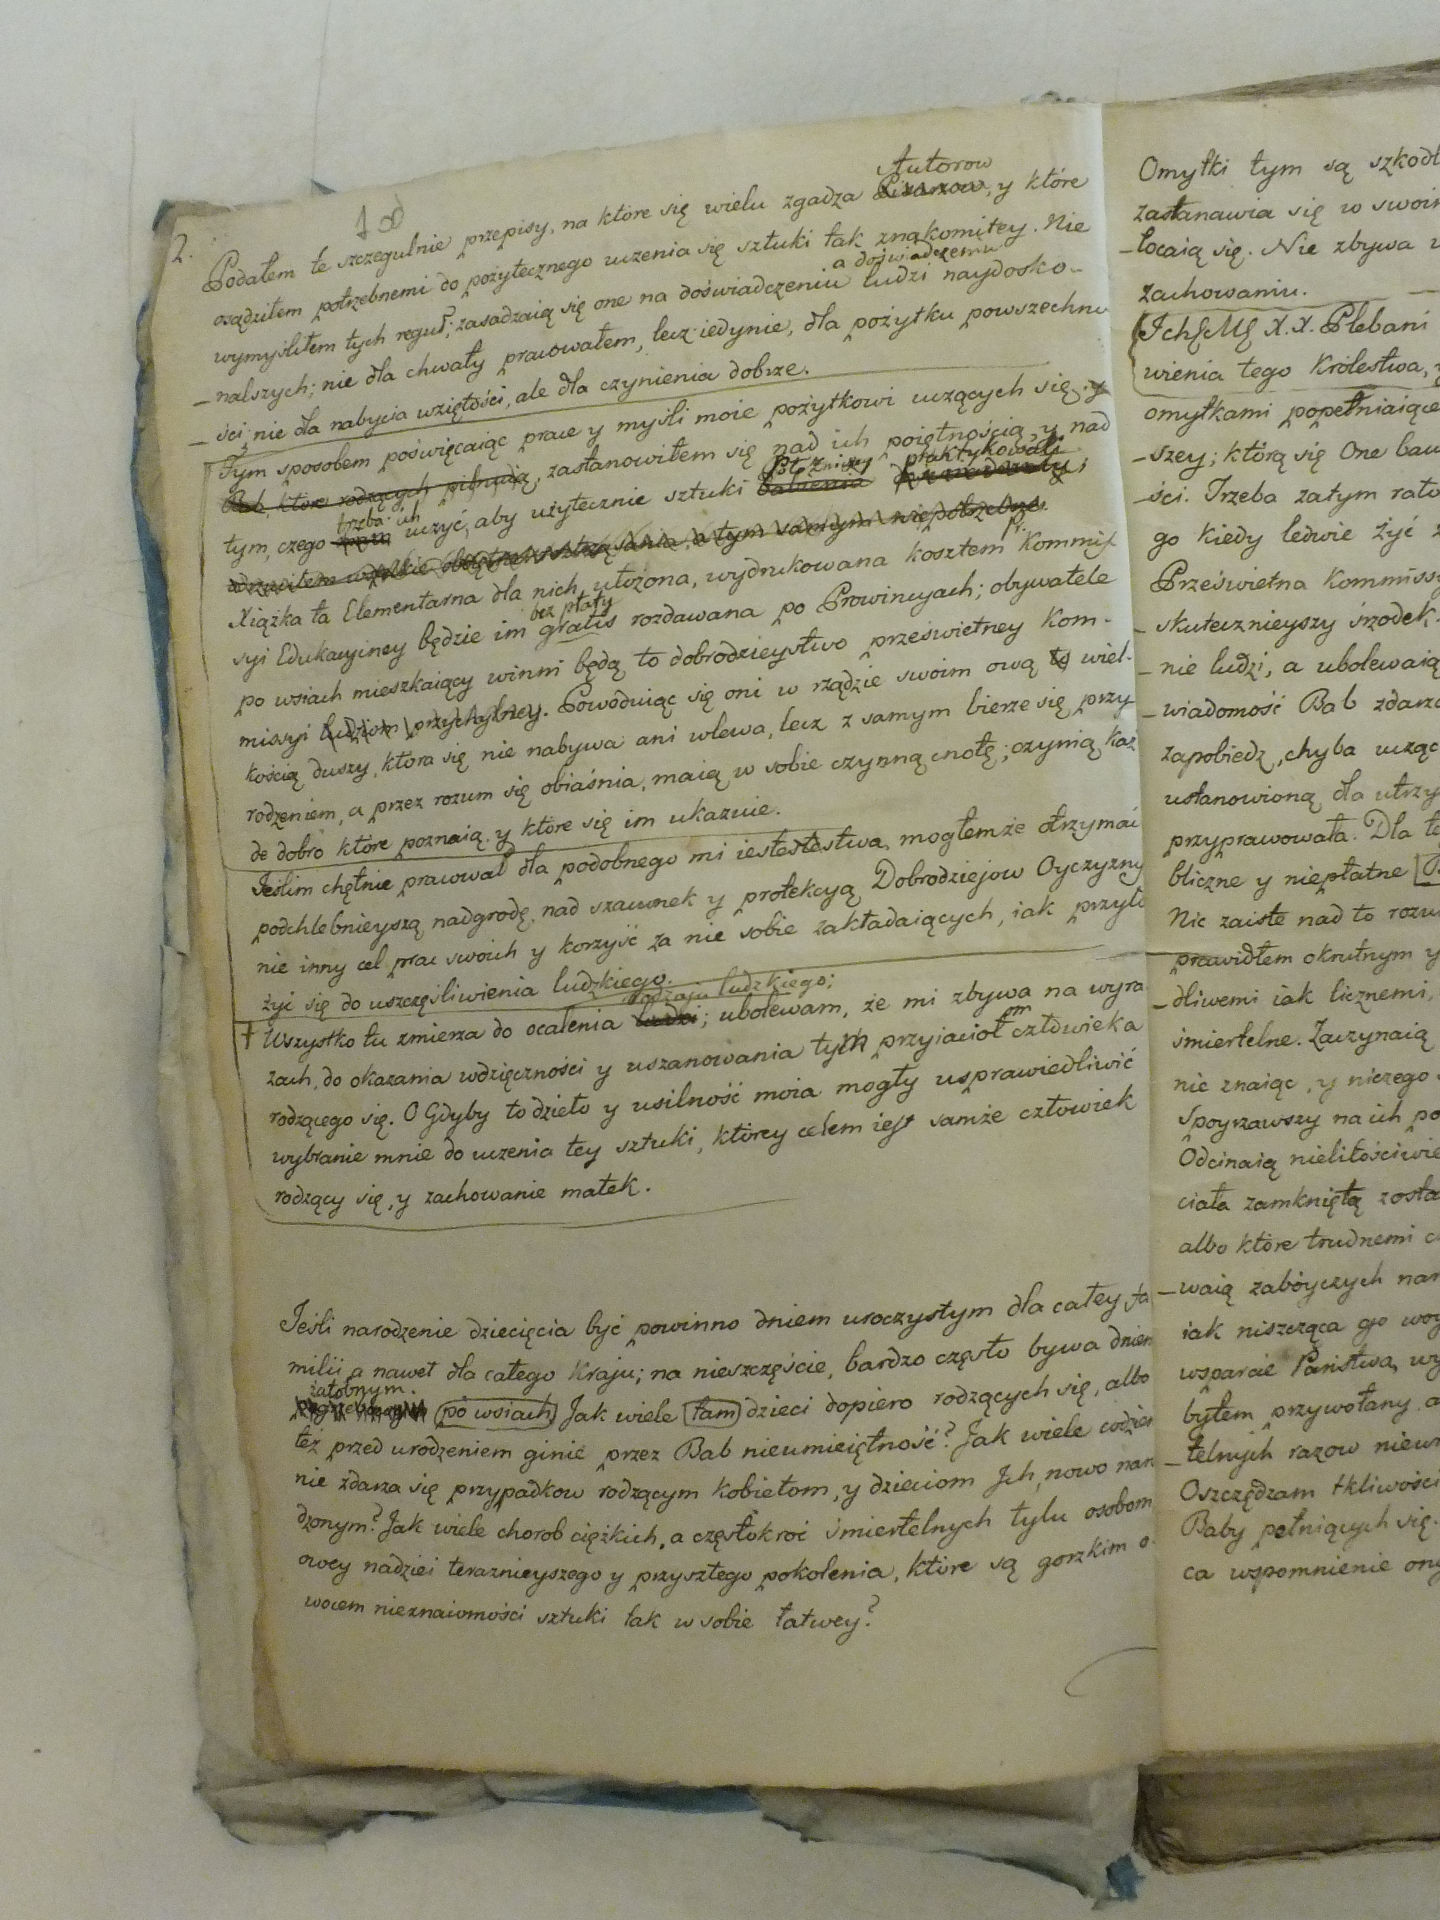 2.
Autorow
Podałem te szczegulnie przepisy, na które się wielu zgadza Pisarzow, y które
osądziłem potrzebnemi do pożytecznego uczenia się sztuki tak znakomitey. Nie
a doświadczemu
wymyśliłem tych reguł; zasadzaią się one na doświadczeniu ludzi naydosko-
-nalszych; nie dla chwały pracowałem, lecz iedynie, dla pożytku powszechno
-ści; nie dla nabycia wziętości, ale dla czynienia dobrze.
Tym sposobem poświęcaiąc prace y myśli moie pożytkowi uczących się, y
Bab które rodzących pilnuią, zastanowiłem się nad ich poiętnością, y nad
trzeba ich praktykowali
tym, czego uczyć, aby użytecznie sztuki babienia
a tym samym niepotrzebne.
Xiążka ta Elementarna dla nich ułożona, wydrukowana kosztem P: Kommis
bez płaty
syi Edukacyiney będzie im gratis rozdawana po Prowincyach; obywatele
po wsiach mieszkaiący winni będą to dobrodzieystwo prześwietney Kom-
missyi ludziom przychylney. Powoduiąc się oni w rządzie swoim ową tą wiel-
kością duszy, która się nie nabywa ani wlewa, lecz z samym bierze się przy
rodzeniem, a przez rozum się obiaśnia, maią w sobie czynną cnotę; czynią każ
de dobro które poznaią, y które się im ukazuie.
Jeślim chętnie pracował dla podobnego mi iestestestwa, mogłemże otrzymać
podchlebnieyszą nadgrodę, nad szacunek y protekcyą Dobrodziejow Oyczyzny
nie inny cel prac swoich y korzyść za nie sobie zakładaiących, iak przyło
żyć się do uszczęśliwienia ludzkiego.
rodzaju ludzkiego;
† Wszystko tu zmierza do ocalenia ludzi; ubolewam, że mi zbywa na wyra
om
zach, do okazania wdzięczności y uszanowania tym przyiacioł człowieka
rodzącego się. O Gdyby to dzieło y usilność moia mogły usprawiedliwić
wybranie mnie do uczenia tey sztuki, którey celem iest samże człowiek
rodzący się, y zachowanie matek.
Jeśli narodzenie dziecięcia być powinno dniem uroczystym dla całey fa
milii, a nawet dla całego Kraju; na nieszczęście, bardzo często bywa dniem
żałobnym.
po wsiach Jak wiele tam dzieci dopiero rodzących się, albo
też przed urodzeniem ginie przez Bab nieumieiętność? Jak wiele codzien
nie zdarza się przypadkow rodzącym kobietom, y dzieciom Ich, nowo naro
dzonym? Jak wiele chorob ciężkich, a częstokroć śmiertelnych tylu osobom
owey nadziei teraznieyszego y przyszłego pokolenia, które są gorzkim o-
wocem nieznaiomości sztuki tak w sobie łatwey?
Omyłki tym są szkodl
zastanawia się w swoim
-tocaią się. Nie zbywa
zachowaniu.
X.X. Plebani
wienia tego Królestwa, y
omyłkami popełniaiące
-szey; którą się One baw
-ści. Trzeba zatym rato
go kiedy ledwie żyć z
Prześwietna Kommissy
-skutecznieyszy śrzodek,
-nie ludzi, a ubolewaią
-wiadomość Bab zdarza
zapobiedz, chyba ucząc
ustanowioną dla utrzy
przyprawowała. Dla te
bliczne y niepłatne
Nic zaiste nad to rozu
prawidłem okrutnym y
-dliwemi iak licznemi,
śmiertelne. Zaczynaią
nic znaiąc, y niczego
Spoyrzawszy na ich po
Odcinaią nielitościwie
ciała zamkniętą zosta
albo które trudnemi c
-waią zabóyczych nar
iak niszcząca go woy
wsparcie Państwa, wy
byłem przywołany, a
-telnych razow nieu
Oszczędzam tkliwości
Baby pełniących się.
ca wspomnienie ony